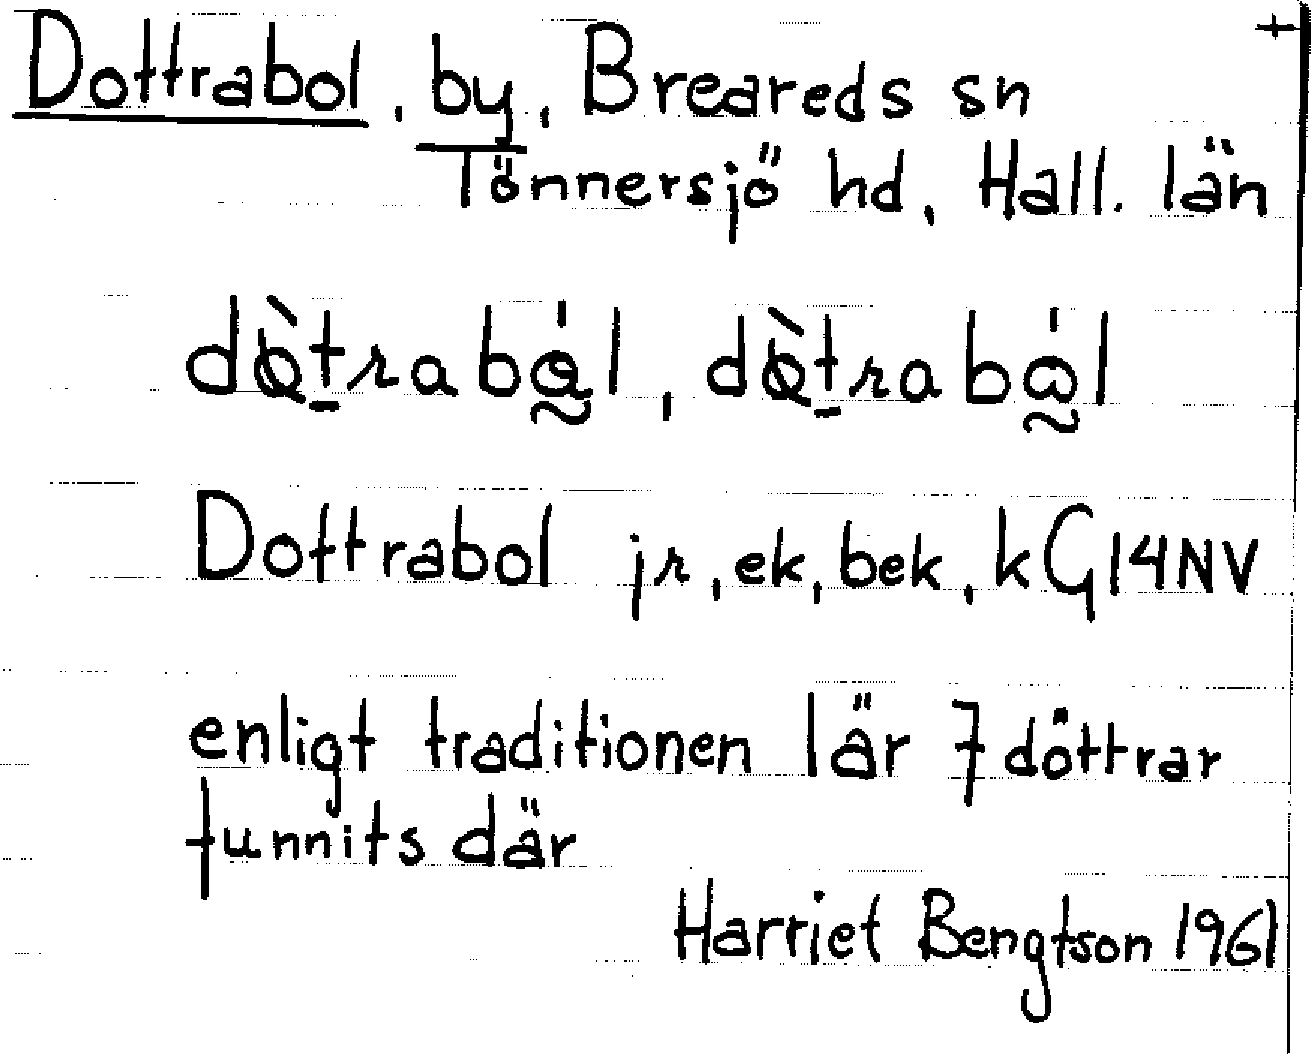 Dottrabol, by, Breareds sn +
Tönnersjö hd, Hall. län
dɵ̀t̠rabǻ̰l, dɵ̀t̠rabώ̰l
Dottrabol jr, ek, bek, kG14NV
enligt traditionen lär 7 döttrar
funnits där
Harriet Bengtson 1961